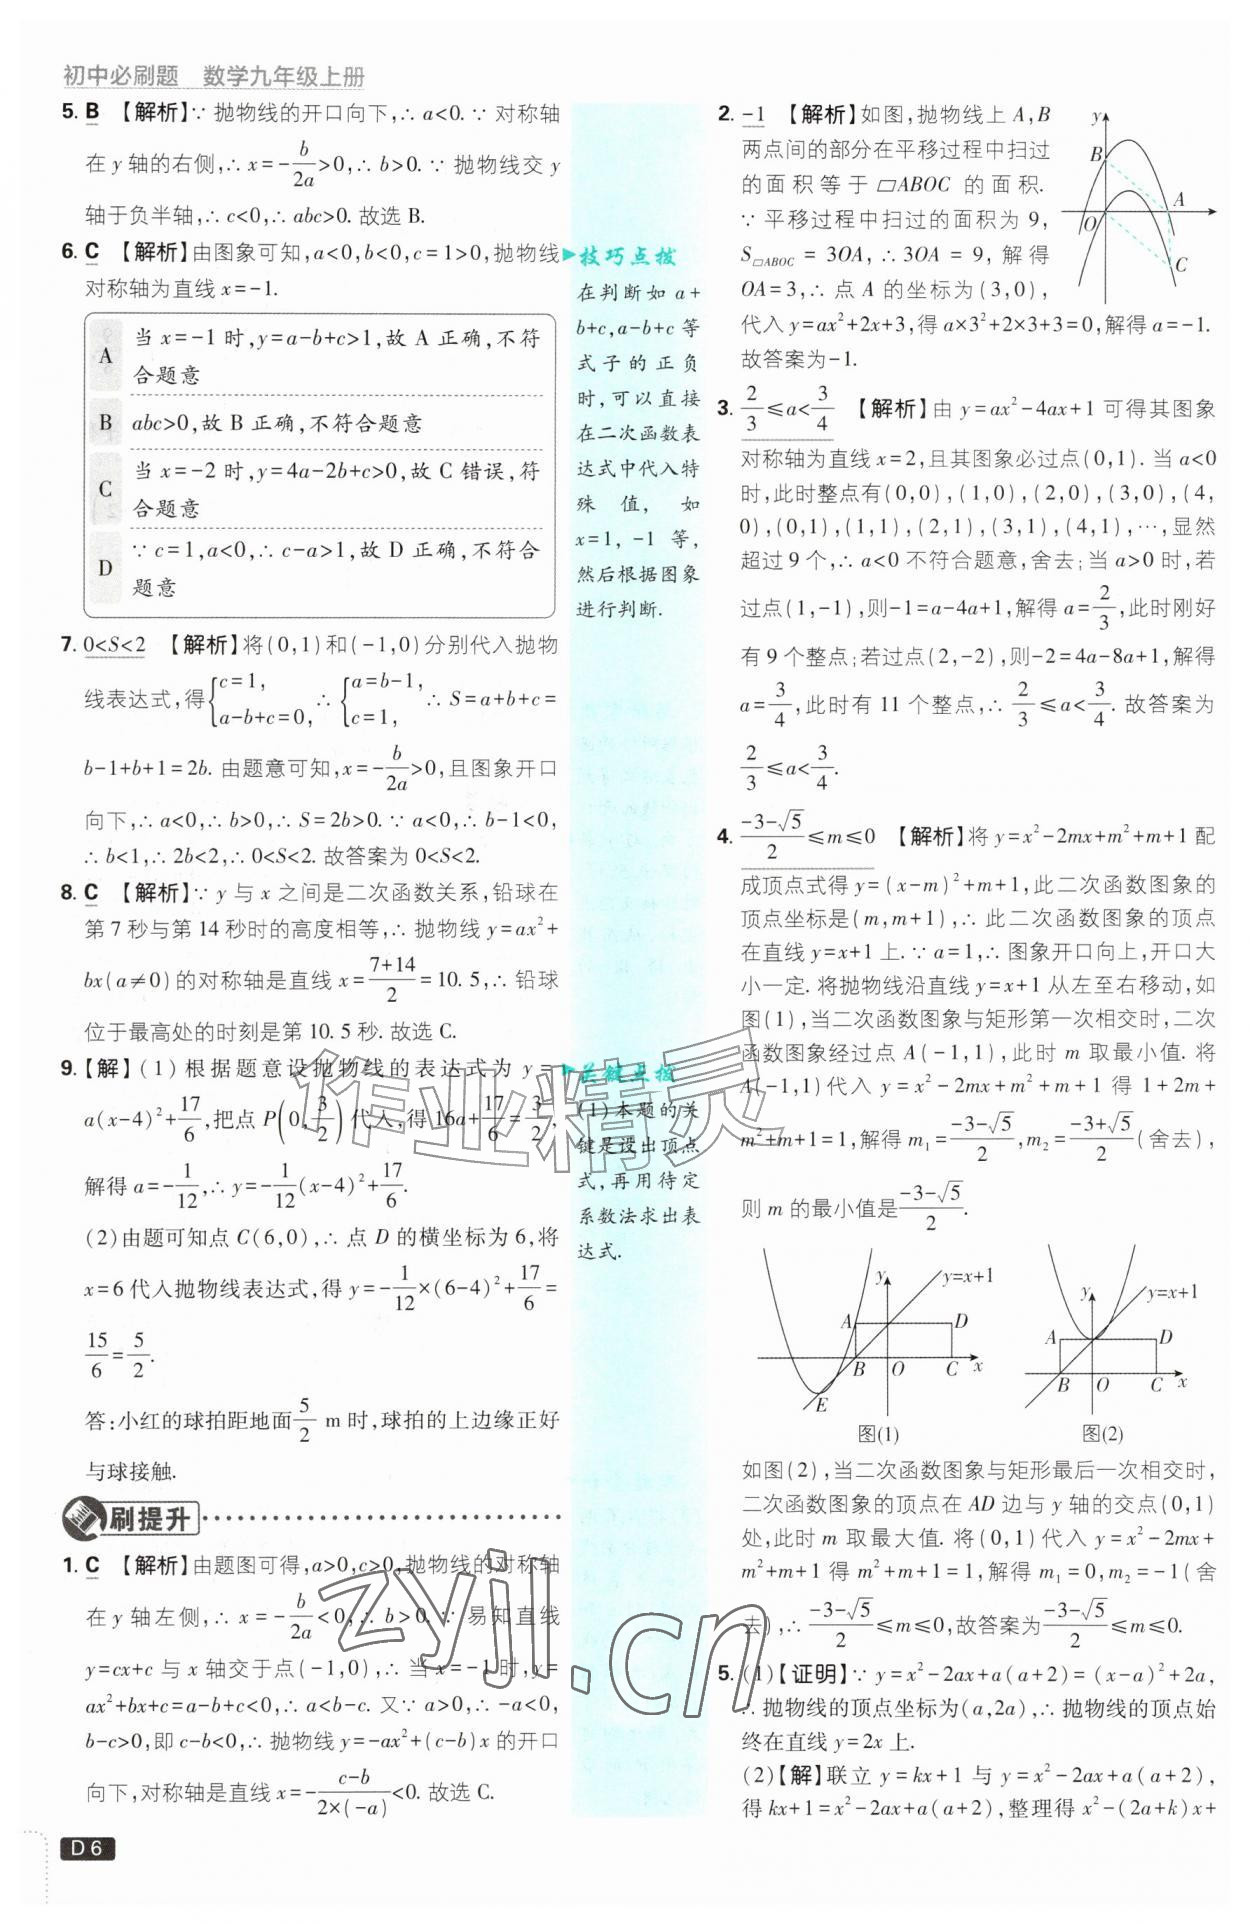 初中必刷题　数学九年级上册
5. B 【解析】∵ 抛物线的开口向下,∴ a<0. ∵ 对称轴
在 y 轴的右侧,∴ x=-b/2a>0,∴ b>0. ∵ 抛物线交 y
轴于负半轴,∴ c<0,∴ abc>0. 故选 B.
6. C 【解析】由图象可知,a<0,b<0,c=1>0,抛物线
对称轴为直线 x=-1.
A 当 x=-1 时,y=a-b+c>1,故 A 正确,不符
合题意
B abc>0,故 B 正确,不符合题意
C 当 x=-2 时,y=4a-2b+c>0,故 C 错误,符
合题意
D ∵ c=1,a<0,∴ c-a>1,故 D 正确,不符合
题意
7. 0<S<2 【解析】将(0,1)和(-1,0)分别代入抛物
线表达式,得{c=1, a-b+c=0, ∴ {a=b-1, c=1, ∴ S=a+b+c=
b-1+b+1=2b. 由题意可知,x=-b/2a>0,且图象开口
向下,∴ a<0,∴ b>0,∴ S=2b>0. ∵ a<0,∴ b-1<0,
∴ b<1,∴ 2b<2,∴ 0<S<2. 故答案为 0<S<2.
8. C 【解析】∵ y 与 x 之间是二次函数关系,铅球在
第 7 秒与第 14 秒时的高度相等,∴ 抛物线 y=ax²+
bx(a≠0)的对称轴是直线 x=(7+14)/2=10. 5,∴ 铅球
位于最高处的时刻是第 10. 5 秒. 故选 C.
9.【解】(1)根据题意设抛物线的表达式为 y=
a(x-4)²+17/6,把点 P(0,3/2)代入,得 16a+17/6=3/2,
解得 a=-1/12,∴ y=-1/12(x-4)²+17/6.
(2)由题可知点 C(6,0),∴ 点 D 的横坐标为 6,将
x=6 代入抛物线表达式,得 y=-1/12×(6-4)²+17/6=
15/6=5/2.
答:小红的球拍距地面5/2 m 时,球拍的上边缘正好
与球接触.
刷提升
1. C 【解析】由题图可得,a>0,c>0,抛物线的对称轴
在 y 轴左侧,∴ x=-b/2a<0,∴ b>0. ∵ 易知直线
y=cx+c 与 x 轴交于点(-1,0),∴ 当 x=-1 时,y=
ax²+bx+c=a-b+c<0,∴ a<b-c. 又∵ a>0,∴ -a<0,
b-c>0,即 c-b<0,∴ 抛物线 y=-ax²+(c-b)x 的开口
向下,对称轴是直线 x=-(c-b)/(2×(-a))<0. 故选 C.
D 6
技巧点拨
在判断如 a+
b+c,a-b+c 等
式子的正负
时,可以直接
在二次函数表
达式中代入特
殊值,如
x=1,-1 等,
然后根据图象
进行判断.
关键点拨
(1)本题的关
键是设出顶点
式,再用待定
系数法求出表
达式.
2. -1 【解析】如图,抛物线上 A,B
两点间的部分在平移过程中扫过
的面积等于 ▱ABOC 的面积.
∵ 平移过程中扫过的面积为 9,
S▱ABOC = 3OA,∴ 3OA = 9,解得
OA=3,∴ 点 A 的坐标为(3,0),
代入 y=ax²+2x+3,得 a×3²+2×3+3=0,解得 a=-1.
故答案为-1.
y
B
A
O
x
C
3. 2/3≤a<3/4 【解析】由 y=ax²-4ax+1 可得其图象
对称轴为直线 x=2,且其图象必过点(0,1). 当 a<0
时,此时整点有(0,0),(1,0),(2,0),(3,0),(4,
0),(0,1),(1,1),(2,1),(3,1),(4,1),…,显然
超过 9 个,∴ a<0 不符合题意,舍去;当 a>0 时,若
过点(1,-1),则-1=a-4a+1,解得 a=2/3,此时刚好
有 9 个整点;若过点(2,-2),则-2=4a-8a+1,解得
a=3/4,此时有 11 个整点,∴ 2/3≤a<3/4. 故答案为
2/3≤a<3/4.
4. (-3-√5)/2≤m≤0 【解析】将 y=x²-2mx+m²+m+1 配
成顶点式得 y=(x-m)²+m+1,此二次函数图象的
顶点坐标是(m,m+1),∴ 此二次函数图象的顶点
在直线 y=x+1 上. ∵ a=1,∴ 图象开口向上,开口大
小一定. 将抛物线沿直线 y=x+1 从左至右移动,如
图(1),当二次函数图象与矩形第一次相交时,二次
函数图象经过点 A(-1,1),此时 m 取最小值. 将
A(-1,1)代入 y=x²-2mx+m²+m+1 得 1+2m+
m²+m+1=1,解得 m₁=(-3-√5)/2,m₂=(-3+√5)/2(舍去),
则 m 的最小值是(-3-√5)/2.
y
y=x+1
A
D
B
O
C
x
E
图(1)
y
y=x+1
A
D
B
O
C
x
图(2)
如图(2),当二次函数图象与矩形最后一次相交时,
二次函数图象的顶点在 AD 边与 y 轴的交点(0,1)
处,此时 m 取最大值. 将(0,1)代入 y=x²-2mx+
m²+m+1 得 m²+m+1=1,解得 m₁=0,m₂=-1(舍
去),∴ (-3-√5)/2≤m≤0,故答案为(-3-√5)/2≤m≤0.
5. (1)【证明】∵ y=x²-2ax+a(a+2)=(x-a)²+2a,
∴ 抛物线的顶点坐标为(a,2a),∴ 抛物线的顶点始
终在直线 y=2x 上.
(2)【解】联立 y=kx+1 与 y=x²-2ax+a(a+2),
得 kx+1=x²-2ax+a(a+2),整理得 x²-(2a+k)x+
作业精灵
zyjl.cn